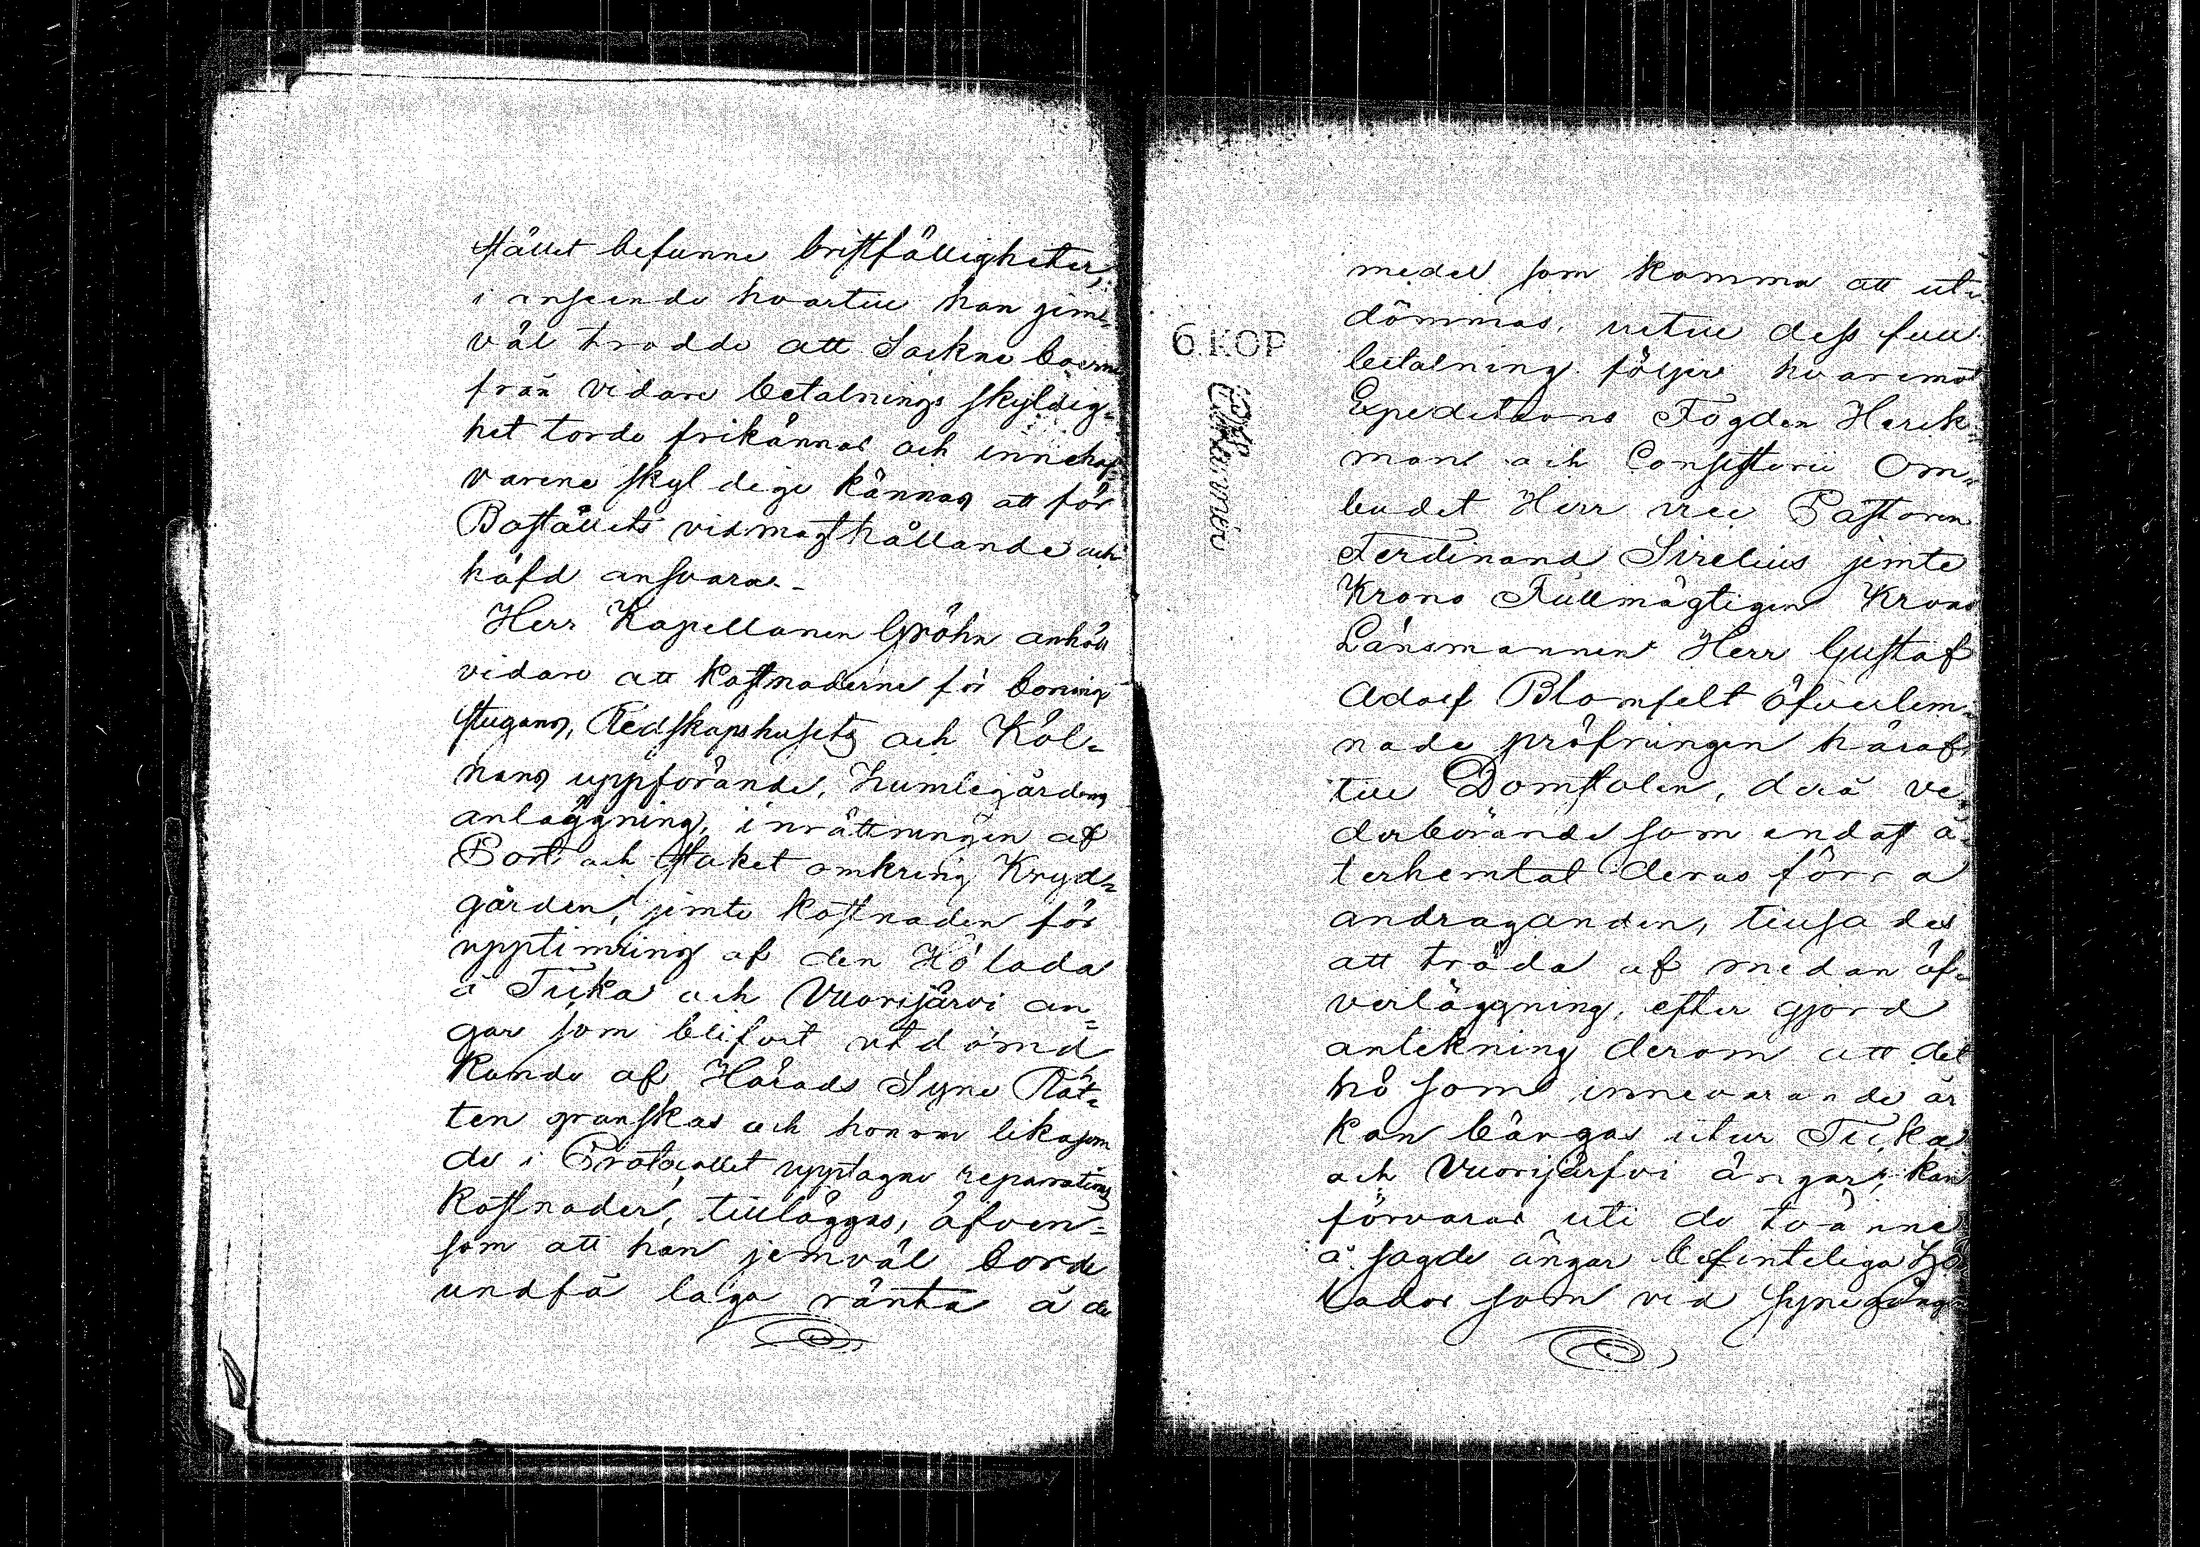 stället befunne bristfälligheter,
i anseende hvartill han jem-
väl trodde att Sockne boerne
från vidare betalnings skyldig-
het torde frikännas och innehaf-
varene skyldige kännas att för
Boställets vidmagthållande och
häfd ansvara.-
Herr Kapellanen Gröhn anhöll
vidare att kostnaderne för boning
stugans, Redskapshusets och Köl-
nans uppförande, humlegårdens
anläggning, inrättningen af
Port och staket omkring Kryd-
gården, jemte kostnaden för
upptimring af den Hölada
å Tuka och Vuorijärvi än-
gar som blifvit utdömd
kunde af Härads Syne Rät-
ten granskas och honom likasom
de i Protocollet upptagne reparations
kostnader, tilläggas, äfven-
som att han jemväl borde
undfå laga ränta å de
6 KOP
medel som komma att ut-
dömmas, intill dess full
betalning följer hvaremot
Expeditions Fogden Herck-
man och Consistorii Om-
budet Herr vice Pastoren
Ferdinand Sirelius jemte
Krono Fullmägtigen Krono
Länsmannen Herr Gustaf
Adolf Blomfelt öfverlem-
nade pröfningen häraf
till Domstolen, derå ve-
derbörande som endast å-
terhemtat deras förra
andraganden, tillsades
att träda af medan öf-
verläggning, efter gjord
antekning derom att det
hö som innevarande år
kan bärgas utur Tuka
och Vuorijärfvi ängar, kan
förvaras uti de tvänne
å sagde ängar befinteliga Hö
lador som vid synegång-